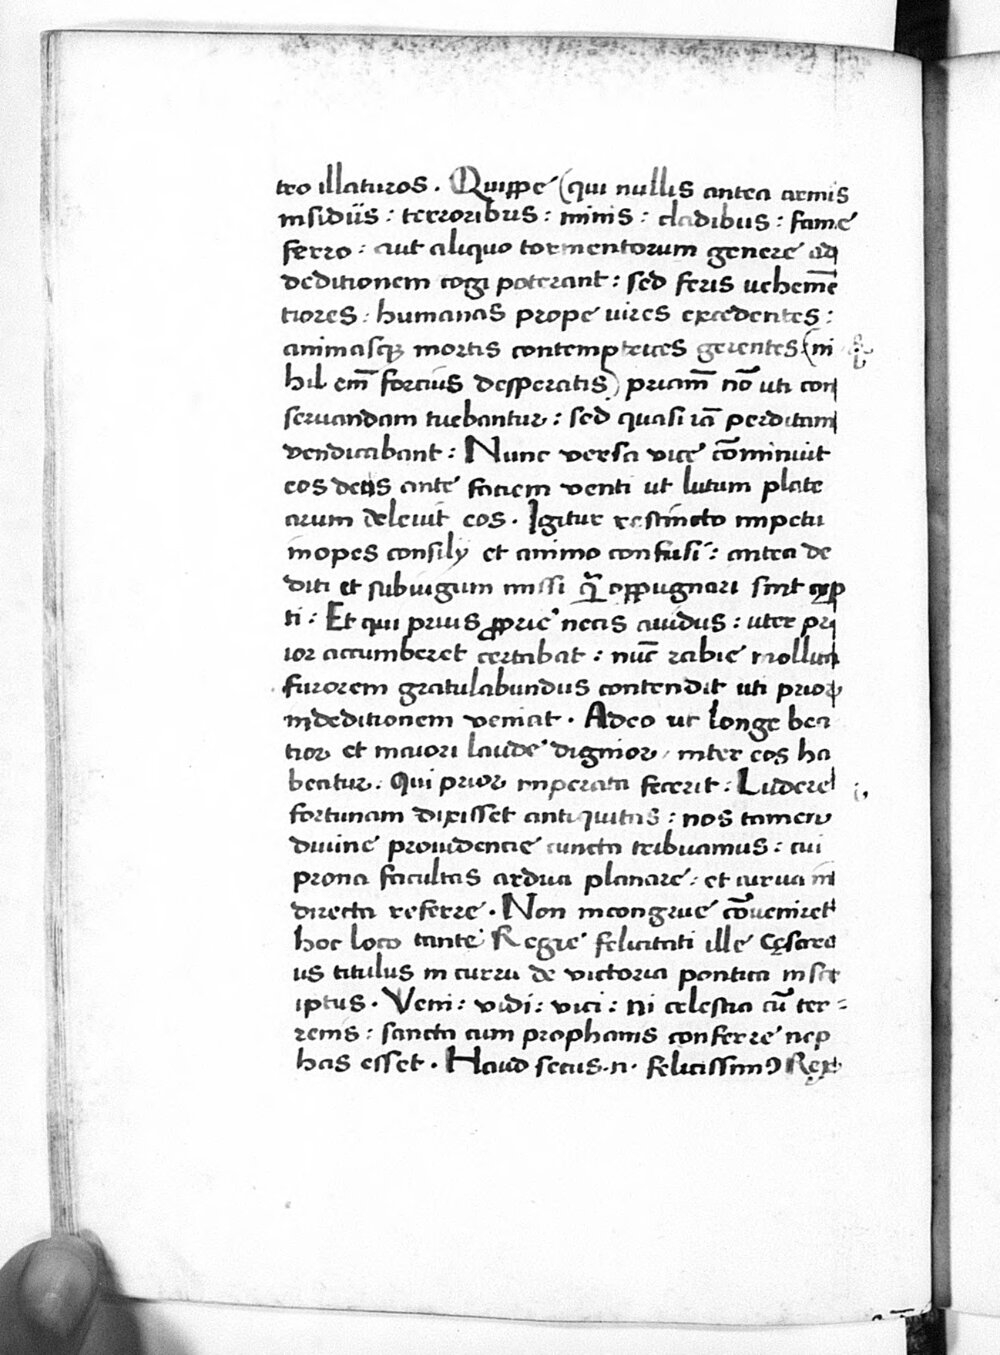 tro illaturos. Quippe (qui nullis antea armis
insidiis: terroribus: minis: cladibus: fame
ferro: aut aliquo tormentorum genere ad
deditionem cogi poterant: sed feris uehemē
tiores: humanas prope uires excedentes:
animasq; mortis contemptrices gerentes (ni
hil em̄ forcius desperatis) priam̄ nō uti con
seruandam tuebantur: sed quasi iā perditam
vendicabant: Nunc versa vice cōminuit
eos ante faciem venti ut lutum plate
arum deleuit eos. Igitur restincto impetu
inopes consilÿ et animo confusi: antea de
diti et subiugum missi q̄ oppugnari sint cep
ti: Et qui prius ꝓprie necis auidus: uter pri
ior accumberet certabat: nūc rabie mollita
furorem gratulabundus contendit uti prior
indeditionem veniat. Adeo ut longe bea
tior et maiori laude dignior, inter eos ha
beatur: Qui prior imperata fecerit: Ludere
fortunam dixisset antiquitas: nos tamen
diuine prouidencie cuncta tribuamus: cui
prona facultas ardua planare: et curua in
directa referre. Non incongrue cōueniret
hoc loco tante Regie felicitati ille Cęsare
us titulus in curru de victoria pontica inscr
iptus. Veni: vidi: vici: ni celestia cū ter-
renis: sancta cum prophanis conferre nep
has esset. Haud secus .n. felicissimꝰ Rex